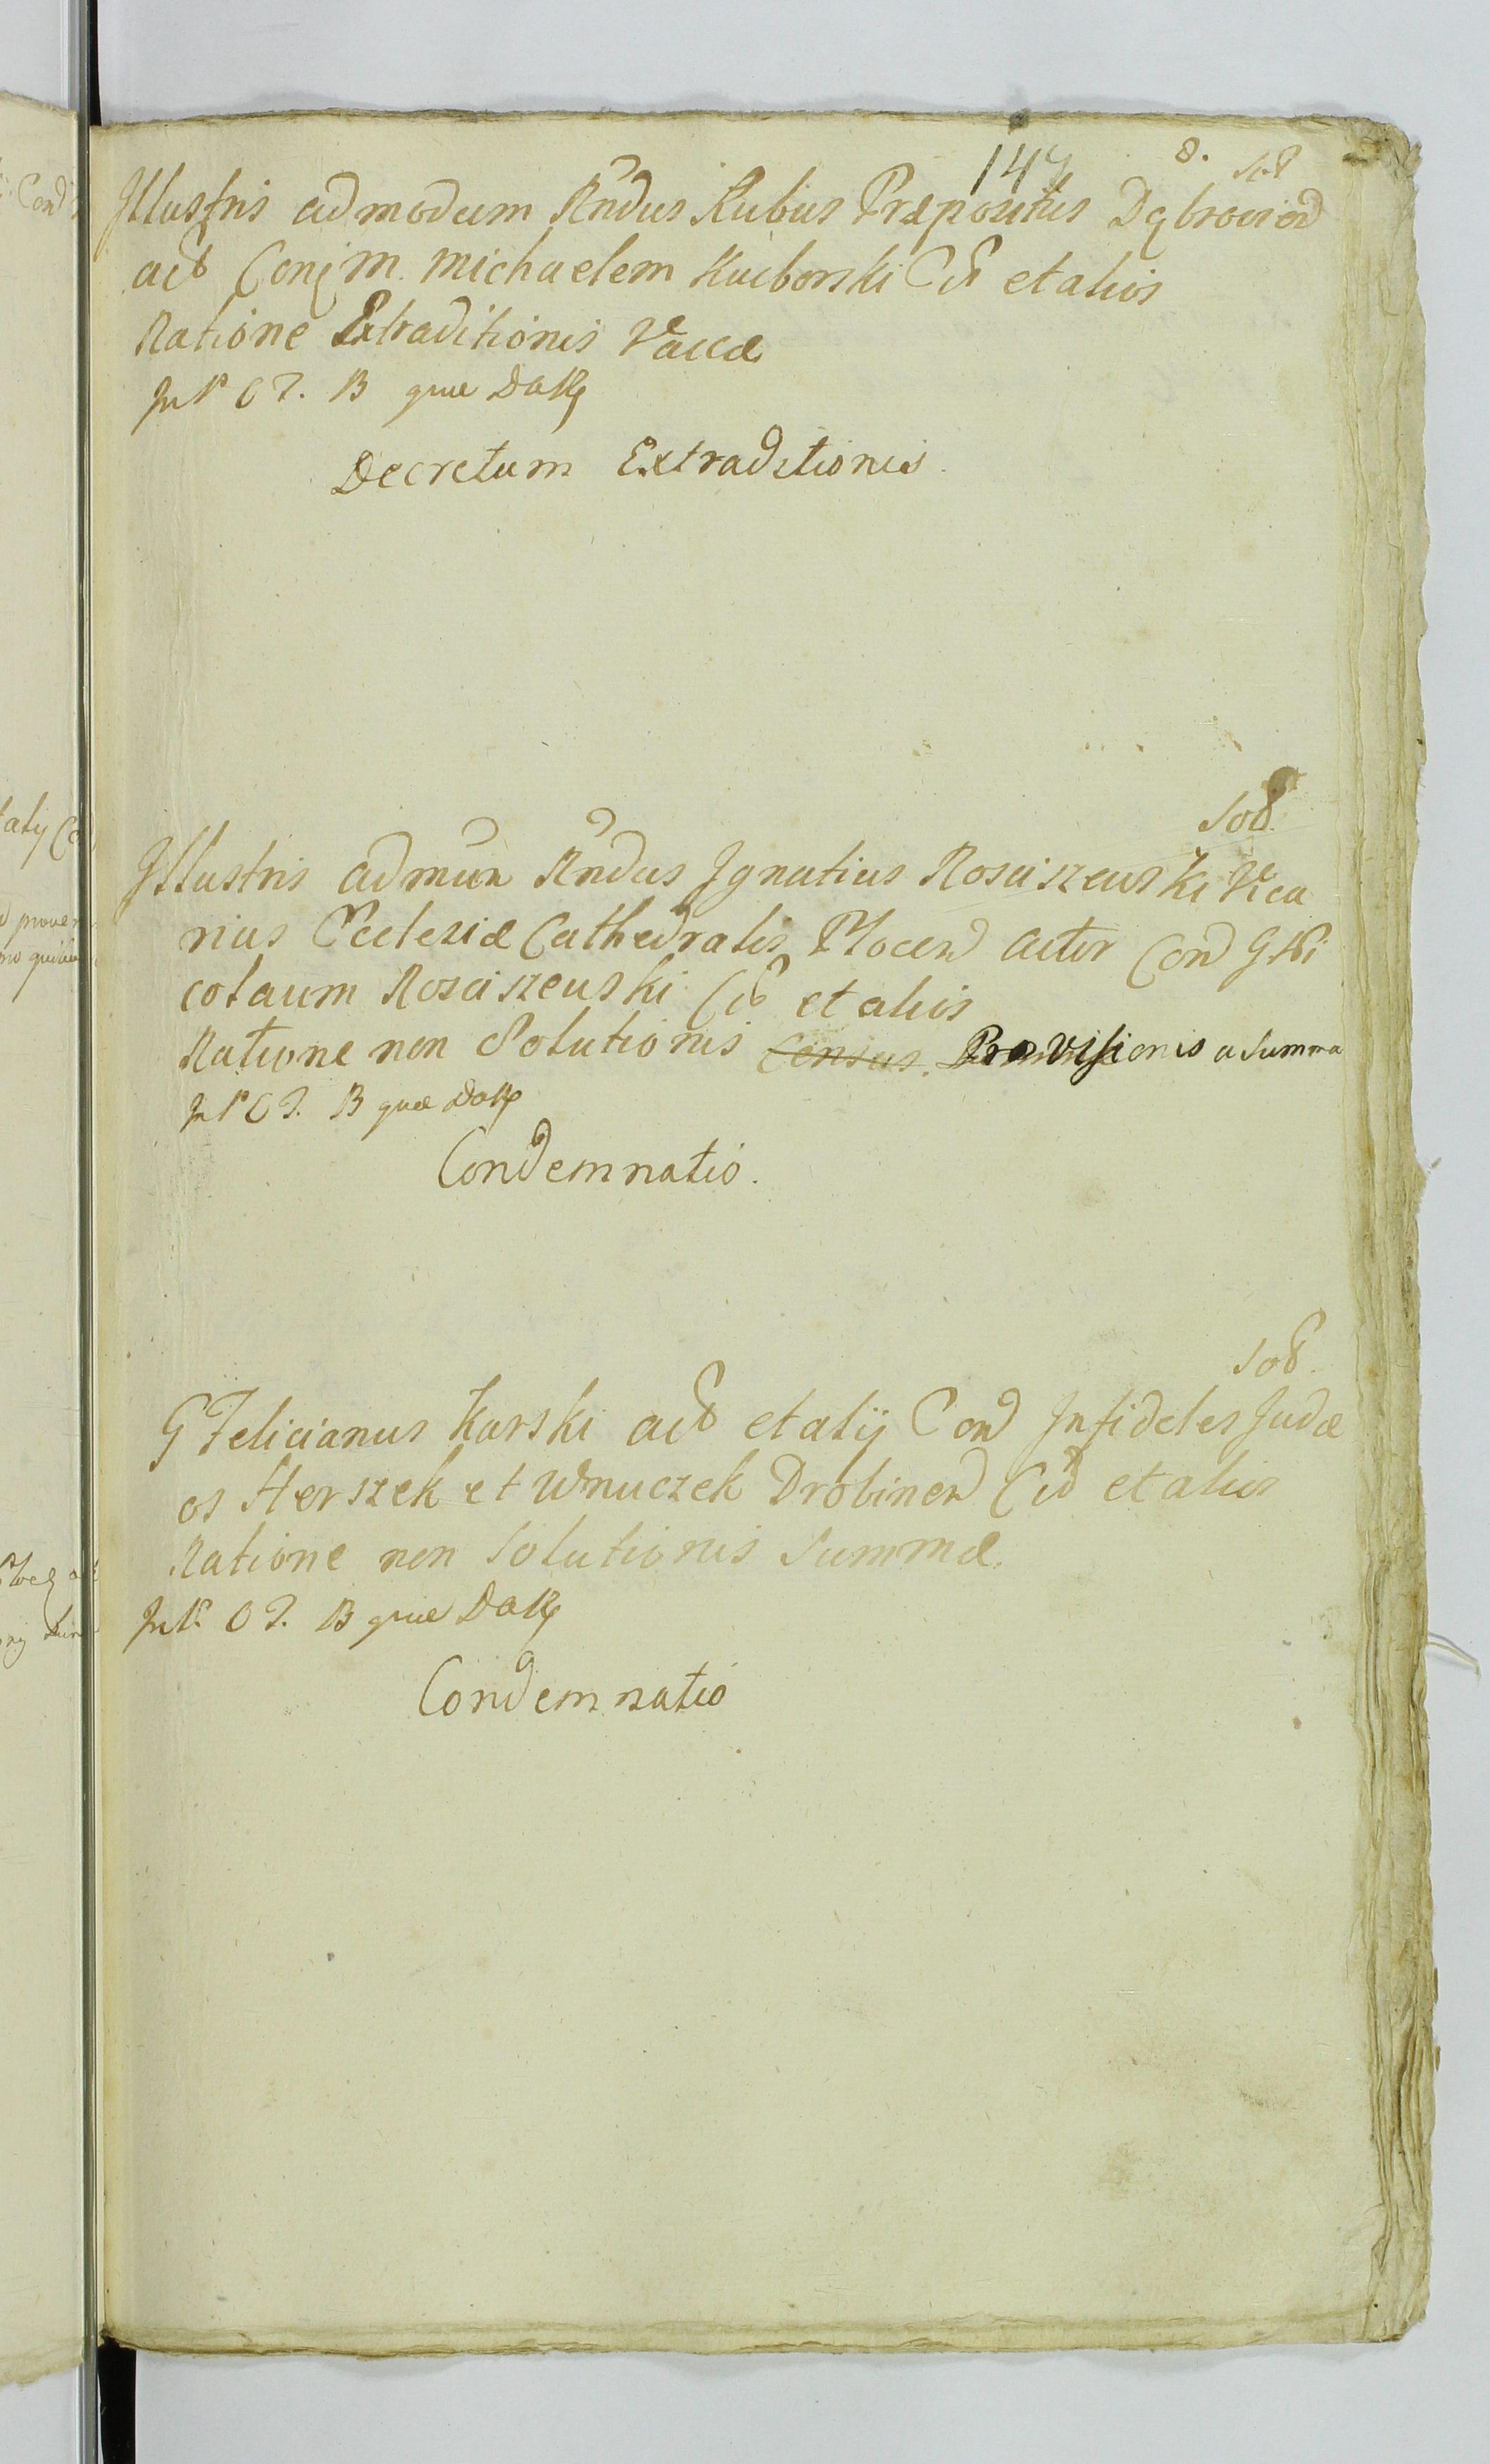 147 8. Sol
Illustris admodum Rndus Rubus Præpositus Dąbrovien
act Con M. Michaelem Kuiborski Cit et alios
Ratione Extraditionis Vaccæ
In P O T. B quæ
Decretum Extraditionis.
Sol.
Illustris admum Rndus Ignatius Rosciszewski Vica
rius Ecclesiæ Cathedralis Plocen actor Con G Ni
colaum Rosciszewski Cit et alios
Ratione non Solutionis Census. Provisionis a Summa
In P O T. B quæ
Condemnatio.
Sol.
G Felicianus Karski act et alij Con Infideles Judæ
os Herszek et Wnuczek Drobinen Cit et alios
Ratione non Solutionis Summæ
In P. O T. B quæ
Condemnatio